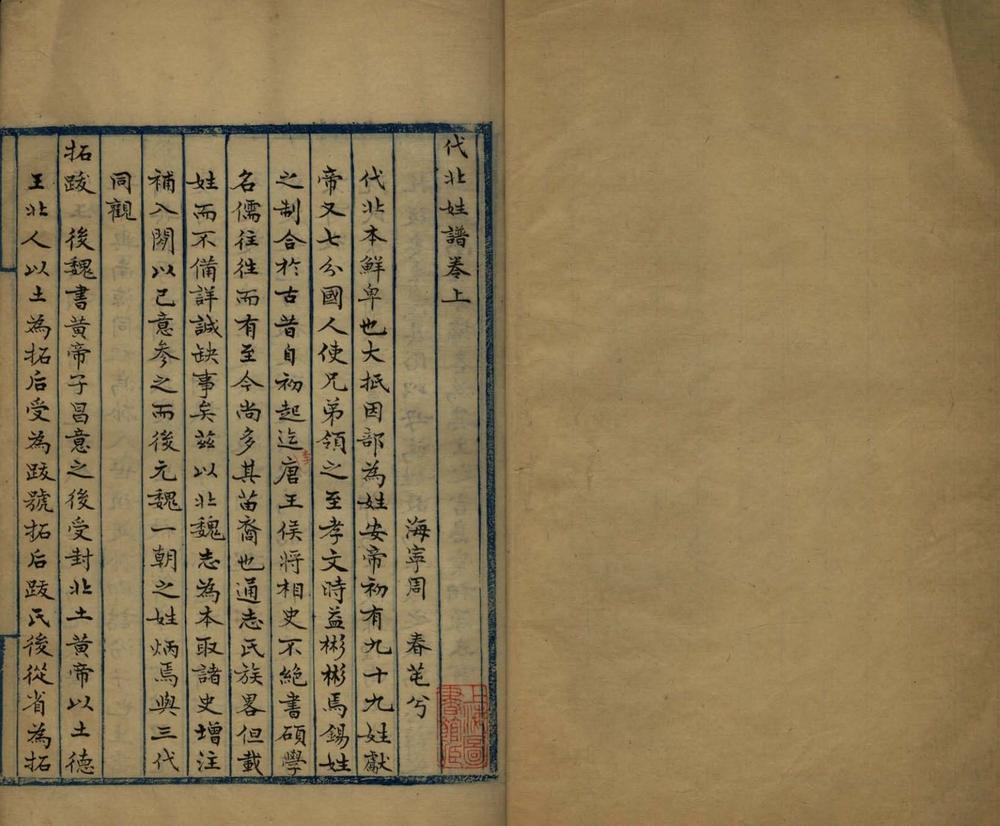 代北姓譜卷上
海寧周　春芚兮
代北本鮮卑也大抵因部為姓安帝初有九十九姓獻
帝又七分國人使兄弟領之至孝文時益彬彬焉錫姓
之制合於古昔自初起迄唐王侯將相史不絕書碩學
名儒往往而有至今尚多其苗裔也通志氏族畧但載
姓而不備詳誠缺事矣茲以北魏志為本取諸史增注
補入閒以己意參之而後元魏一朝之姓炳焉與三代
同觀
拓跋　後魏書黃帝子昌意之後受封北土黃帝以土德
王北人以土為拓后受為跋號拓后跋氏後從省為拓
上海圖書館藏